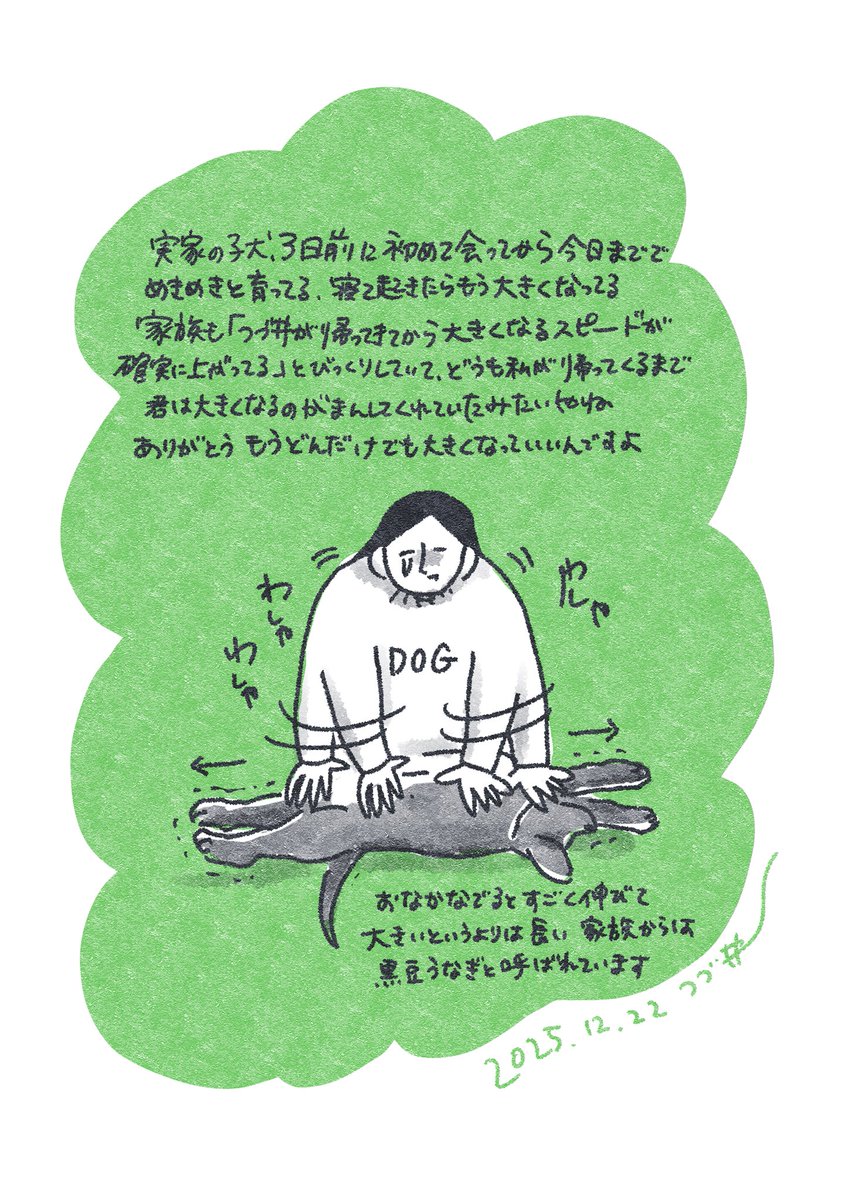 実家の子犬、3日前に初めて会ってから今日までで
めきめきと育ってる、寝て起きたらもう大きくなってる
家族も「つづ井が帰ってきてから大きくなるスピードが
確実に上がってる」とびっくりしていて、どうも私が帰ってくるまで
君は大きくなるのがまんしてくれていたみたいやね
ありがとう もうどんだけでも大きくなっていいんですよ
わしゃ
わしゃ
わしゃ
DOG
おなかなでるとすごく伸びて
大きいというよりは長い 家族からは
黒豆うなぎと呼ばれています
2025.12.22 つづ井